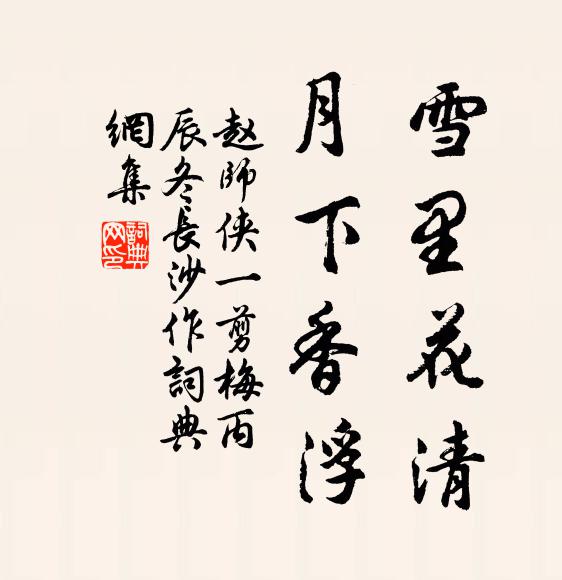 雪里花清
月下香浮
赵師侠一剪梅丙
辰冬長沙作詞典
網集
詞典
网印